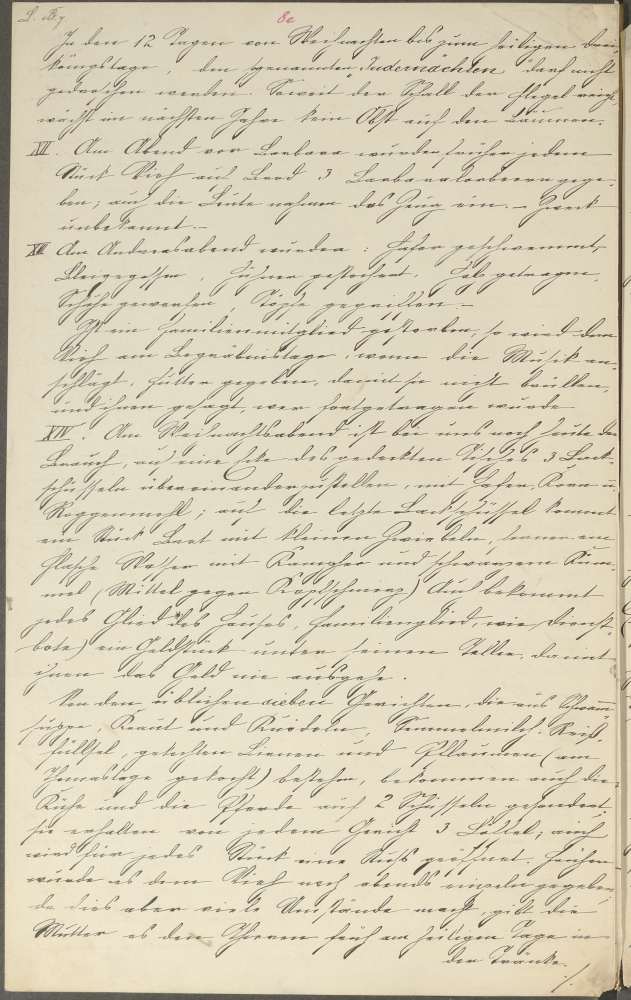 8c
In den 12 Tagen von Weihnachten bis zum heiligen Drei-
königstage, den sogenannten darf nicht
gedroschen werden. Soweit der Schall der Flegel reicht,
wächst im nächsten Jahre kein Obst auf den Bäumen.
XII. Am Abend vor Barbara wurden früher jedem
Stück Vieh auf Brod 3 gege-
ben; auch die Leute nahmen das Zeug ein. – Zweck
unbekannt. –
XIII Am Andreasabend wurden: Hafer geschwemmt,
Blei gegossen, Hühner , Holz getragen,
Schuhe geworfen, Töpfe gegriffen. –
Ist ein Familienmitglied gestorben, so wird dem
Vieh am Begräbnistage, wenn die Musik an-
schlägt, Futter gegeben, damit sie nicht brüllen,
und ihnen gesagt, wer fortgetragen wurde
XIV. Am Weihnachtsabend ist bei uns noch heute der
Brauch, auf eine Ecke des gedeckten Tisches 3 Back-
schüsseln übereinanderzustellen, mit Hafer, Korn u.
Roggenmehl; auf die letzte Backschüssel kommt
ein Stück Brot mit kleinen Zwiebeln, ferner eine
Flasche Wasser mit Kampher und schwarzem Küm-
mel (Mittel gegen Kopfschmerz) Auch bekommt
jedes Glied des Hauses, Familienglied, wie Dienst-
bote) ein Geldstück unter seinen Teller, damit
ihnen das Geld nie ausgehe.
Von den üblichen sieben Gerichten, die aus
suppe, Kraut und Knödeln, Semmelmilch, Reis,
, gekochten Birnen und Pflaumen (am
Thomastage gekocht) bestehen, bekommen auch die
Kühe und die Pferde auf 2 Schüsseln gesondert.
sie erhalten von jedem Gericht 3 Löffel; auch
wird für jedes Stück eine Nuß geöffnet. Früher
wurde es dem Vieh noch abends einzeln gegeben,
da dies aber viele Umstände macht, gibt die
Mutter es den früh am heiligen Tage in
der Tränke.
./.